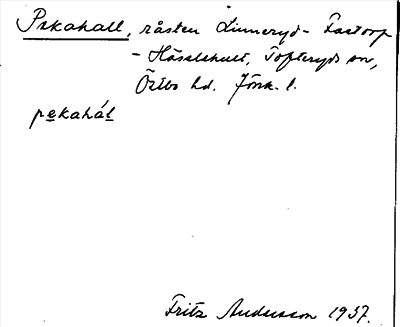 Pekahall, råsten Linneryd- Fastorp
- Hässlehult, Tofteryds sn,
Östbo hd. Jönk. l.
pekahál
Fritz Andersson 1937.